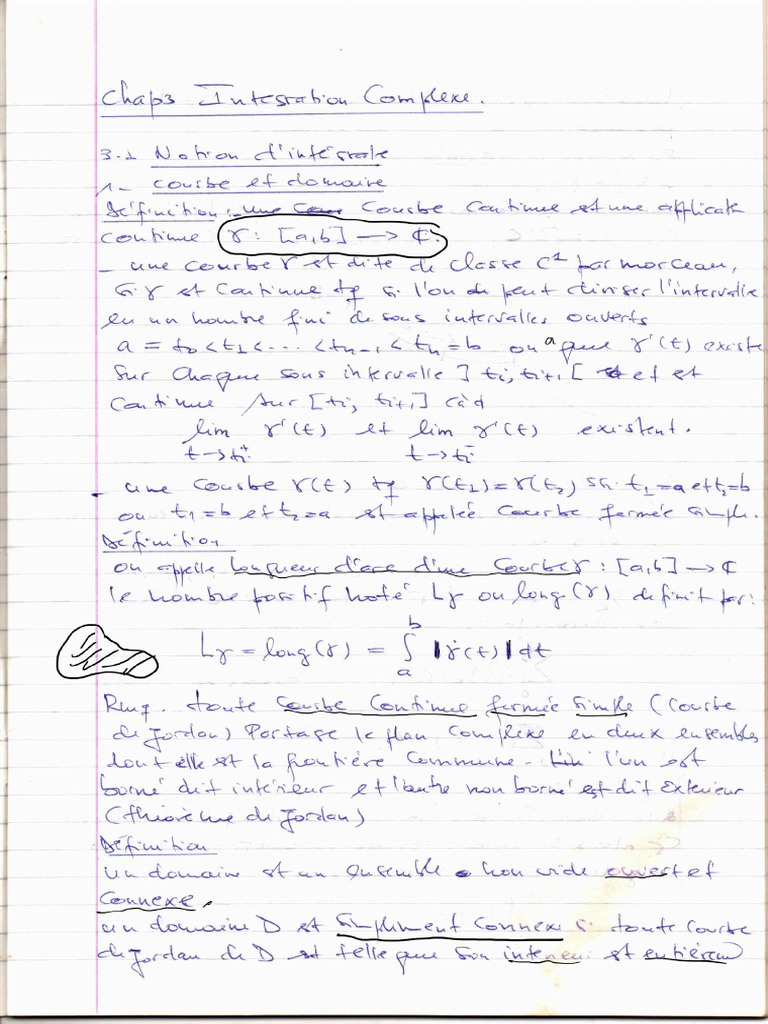 Chap3 Integration Complexe.
3.1 Notion d'intégrale
1- courbe et domaine
Définition : une Courbe Continue est une applicat
continue γ : [a,b] → ℂ.
- une courbe γ est dite de classe C¹ par morceau,
si γ est Continue tq si l'on peut diviser l'intervalle
en un nombre fini de sous intervalles ouverts
a = t₀ < t₁ < ... < tₙ₋₁ < tₙ = b on a que γ'(t) existe
sur chaque sous intervalle ] tᵢ, tᵢ₊₁ [ et est
continue sur [tᵢ, tᵢ₊₁] càd
lim γ'(t) et lim γ'(t) existent.
t→tᵢ⁺ t→tᵢ⁻
- une Courbe γ(t) tq γ(t₁) = γ(t₂) ssi t₁=a et t₂=b
ou t₁=b et t₂=a est appelée Courbe fermée simple.
Définition
on appelle longueur d'arc d'une Courbe γ : [a,b] → ℂ
le nombre positif noté Lγ ou long(γ) definit par:
Lγ = long(γ) = ∫ₐᵇ |γ̇(t)| dt
Rmq. toute Courbe Continue fermée simple (Courbe
de Jordan) Partage le plan Complexe en deux ensembles
dont elle est la frontière Commune. l'un est
borné dit intérieur et l'autre non borné est dit Exterieur
(théorème de Jordan)
Définition
un domaine est un ensemble non vide ouvert et
Connexe.
un domaine D est Simpliment Connexe si toute Courbe
de Jordan de D est telle que son interieur est entièrem